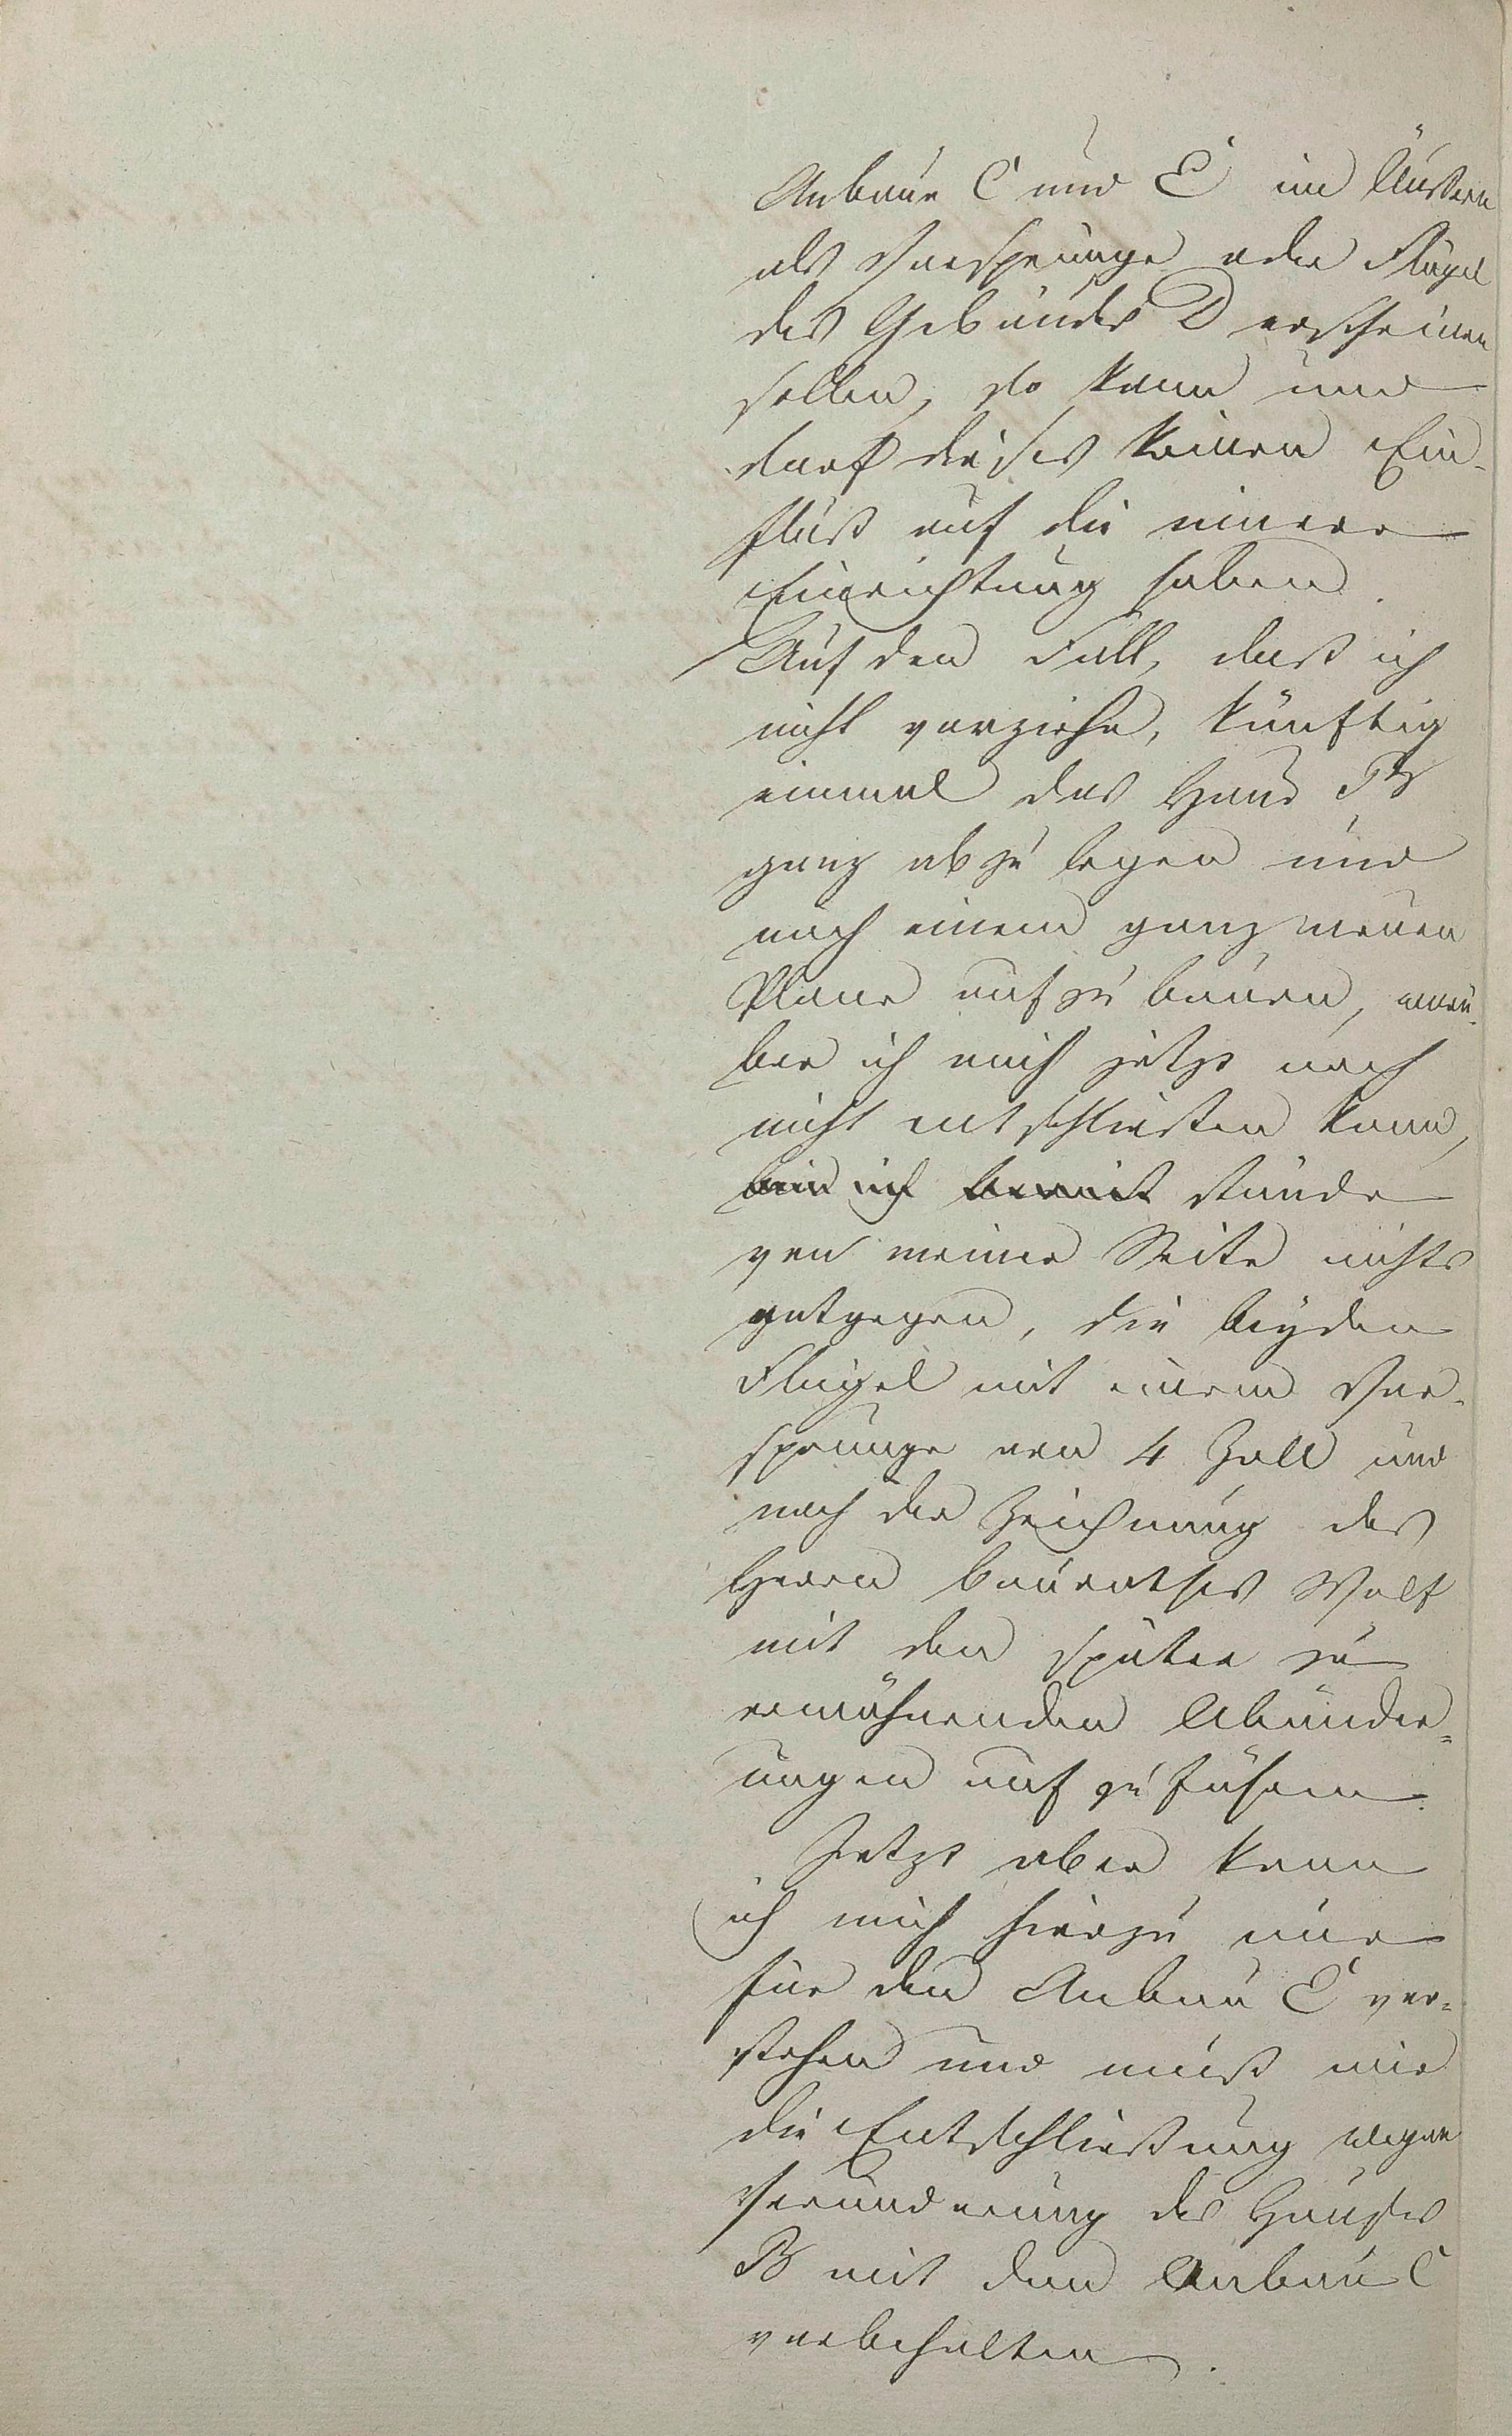 Anbaue C und E im Äußern
als Vorsprünge oder Flügel
des Gebäudes D erscheinen
sollen, so kann und
darf dieses keinen Ein-
fluß auf die innere
Einrichtung haben.
Auf den Fall, daß ich
nicht vorziehe, künftig
einmal das Haus B
ganz abzulegen und
nach einem ganz neuen
Plane aufzubauen, worü-
ber ich mich jetzt noch
nicht entschließen kann,
bin ich bereit stände
von meiner Seite nichts
entgegen, die beyden
Flügel mit einem Vor-
sprunge von 4 Zoll und
nach der Zeichnung des
Herrn Baurathes Wolf
mit den später zu
erwähnenden Abänder=
ungen aufzuführen.
Jetzt aber kann
ich mich hierzu nur
für den Anbau E ver=
stehen und muß mir
die Entschließung wegen
Veränderung des Hauses
B mit dem Anbau C
vorbehalten.